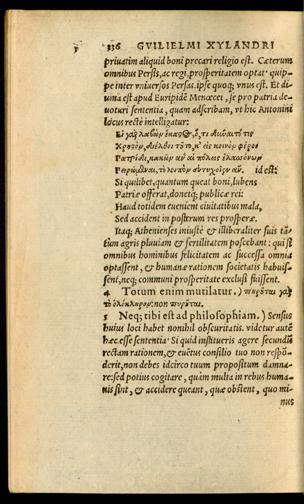 336 GVILIELMI XYLANDRI
priuatim aliquid boni precari religio est. Cæterum
omnibus Persis, ac regi, prosperitatem optat: quip-
pe inter vniuersos Persas. ipse quoq; vnus est. Et di-
uina est apud Euripidē Menœcei, se pro patria de-
uoturi sententia, quam adscribam, vt hic Antonini
locus rectè intelligatur:
Εἰ γὰρ λαβὼν ἕκαστος, ὅ, τι δύναιτό τις
Χρηστὸν, διέλθοι τοῦτο, κ' εἰς κοινὸν φέροι
Πατρίδι, κακῶν ἂν αἱ πόλεις ἐλασσόνων
Πειρώμεναι, τὸ λοιπὸν εὐτυχοῖεν ἄν. id est:
Si quilibet, quantum queat boni, lubens
Patriæ offerat, donetq; publicæ rei:
Haud totidem eueniēt ciuitatibus mala,
Sed accident in postrum res prosperæ.
Itaq; Athenienses iniustè & illiberaliter suis tā-
tum agris pluuiam & fertilitatem poscebant: qui si
omnibus hominibus felicitatem ac successa omnia
optassent, & humanæ rationem societatis habuis-
sent, neq; communi prosperitate exclusi fuissent.
4 Totum enim mutilatur.) πηροῦται γὰρ
τὸ ὁλόκληρον: non πυροῦται.
5 Neq; tibi est ad philosophiam.) Sensus
huius loci habet nonihil obscuritatis. videtur autē
hæc esse sententia: Si quid institueris agere secundū
rectam rationem, & euētus consilio tuo non respō-
derit, non debes idcirco tuum propositum damna-
re: sed potius cogitare, quàm multa in rebus huma-
nis sint, & accidere queant, quæ obstent, quo mi-
nus